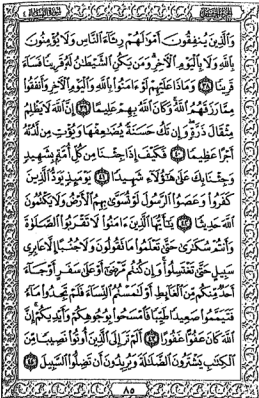 وَٱلَّذِينَ يُنفِقُونَ أَمْوَٰلَهُمْ رِئَآءَ ٱلنَّاسِ وَلَا يُؤْمِنُونَ
بِٱللَّهِ وَلَا بِٱلْيَوْمِ ٱلْءَاخِرِ وَمَن يَكُنِ ٱلشَّيْطَٰنُ لَهُۥ قَرِينًا فَسَآءَ
قَرِينًا ٣٨ وَمَاذَا عَلَيْهِمْ لَوْ ءَامَنُوا۟ بِٱللَّهِ وَٱلْيَوْمِ ٱلْءَاخِرِ وَأَنفَقُوا۟
مِمَّا رَزَقَهُمُ ٱللَّهُ وَكَانَ ٱللَّهُ بِهِمْ عَلِيمًا ٣٩ إِنَّ ٱللَّهَ لَا يَظْلِمُ
مِثْقَالَ ذَرَّةٍ وَإِن تَكُ حَسَنَةً يُضَٰعِفْهَا وَيُؤْتِ مِن لَّدُنْهُ
أَجْرًا عَظِيمًا ٤٠ فَكَيْفَ إِذَا جِئْنَا مِن كُلِّ أُمَّةٍۭ بِشَهِيدٍ
وَجِئْنَا بِكَ عَلَىٰ هَٰٓؤُلَآءِ شَهِيدًا ٤١ يَوْمَئِذٍ يَوَدُّ ٱلَّذِينَ
كَفَرُوا۟ وَعَصَوُا۟ ٱلرَّسُولَ لَوْ تُسَوَّىٰ بِهِمُ ٱلْأَرْضُ وَلَا يَكْتُمُونَ
ٱللَّهَ حَدِيثًا ٤٢ يَٰٓأَيُّهَا ٱلَّذِينَ ءَامَنُوا۟ لَا تَقْرَبُوا۟ ٱلصَّلَوٰةَ
وَأَنتُمْ سُكَٰرَىٰ حَتَّىٰ تَعْلَمُوا۟ مَا تَقُولُونَ وَلَا جُنُبًا إِلَّا عَابِرِى
سَبِيلٍ حَتَّىٰ تَغْتَسِلُوا۟ وَإِن كُنتُم مَّرْضَىٰٓ أَوْ عَلَىٰ سَفَرٍ أَوْ جَآءَ
أَحَدٌ مِّنكُم مِّنَ ٱلْغَآئِطِ أَوْ لَٰمَسْتُمُ ٱلنِّسَآءَ فَلَمْ تَجِدُوا۟ مَآءً
فَتَيَمَّمُوا۟ صَعِيدًا طَيِّبًا فَٱمْسَحُوا۟ بِوُجُوهِكُمْ وَأَيْدِيكُمْ إِنَّ
ٱللَّهَ كَانَ عَفُوًّا غَفُورًا ٤٣ أَلَمْ تَرَ إِلَى ٱلَّذِينَ أُوتُوا۟ نَصِيبًا مِّنَ
ٱلْكِتَٰبِ يَشْتَرُونَ ٱلضَّلَٰلَةَ وَيُرِيدُونَ أَن تَضِلُّوا۟ ٱلسَّبِيلَ ٤٤
٨٥